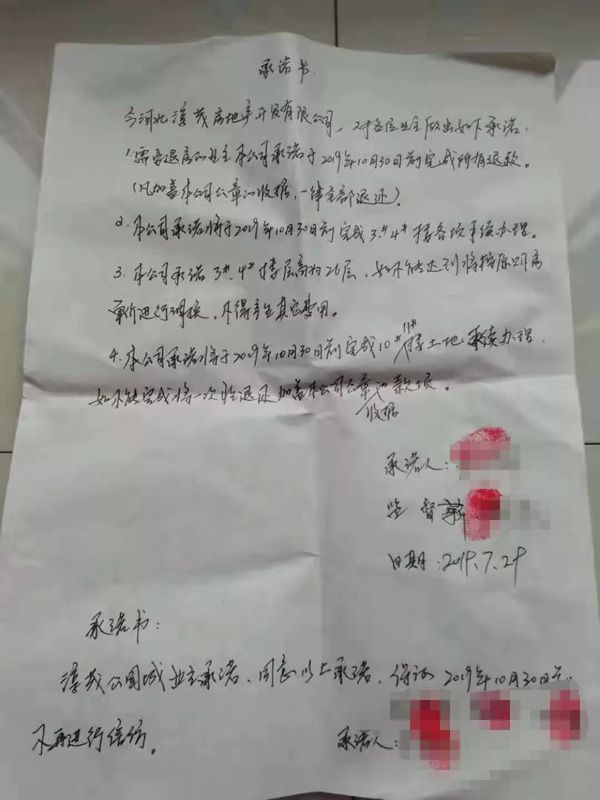 承诺书
今河北淳茂房地产开发有限公司，对各位业主做出如下承诺.
1.需要退房的业主本公司承诺于2019年10月30日前完成所有退款。
(凡加盖本公司公章的收据，一律全部退还).
2.本公司承诺将于2019年10月30日前完成3#.4#楼各项手续办理。
3.本公司承诺3#.4#楼层高为26层，如不能达到将按原则
单价进行调换，不得产生其它费用。
4.本公司承诺将于2019年10月30日前完成10#11#楼土地手续办理.
如不能完成将一次性退还加盖本公司公章收据的款项。
承诺人:
监督
日期:2019.7.29
承诺书:
淳茂公园城业主承诺、同意以上承诺，保证2019年10月30日前
不再进行信访。
承诺人: